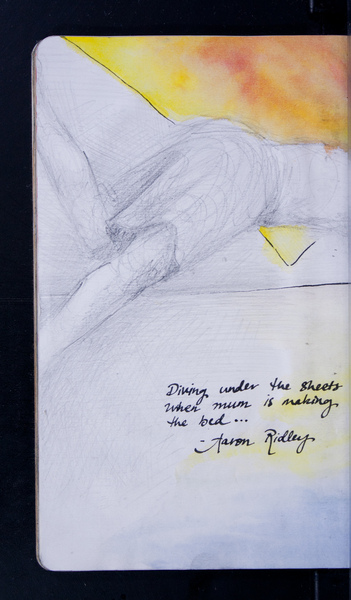 Diving under the sheets
when mum is making
the bed...
- Aaron Ridley